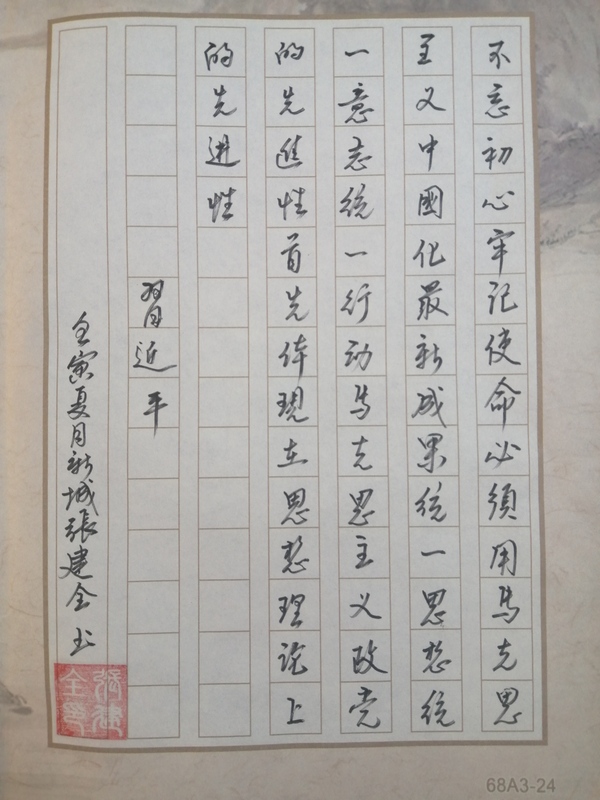 不忘初心牢记使命必须用马克思
主义中國化最新成果统一思想统
一意志统一行动马克思主义政党
的先進性首先体現在思想理论上
的先进性
習近平
壬寅夏月新城張建全书
張建全印
68A3-24